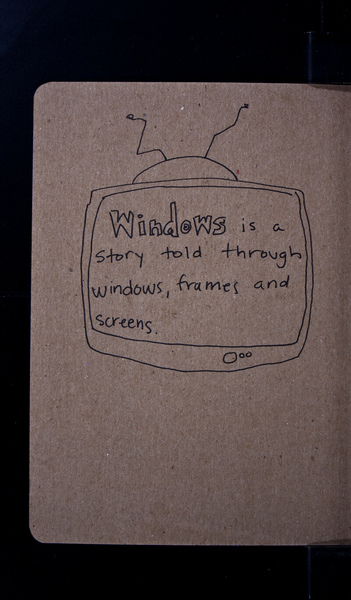 Windows is a
story told through
windows, frames and
screens.